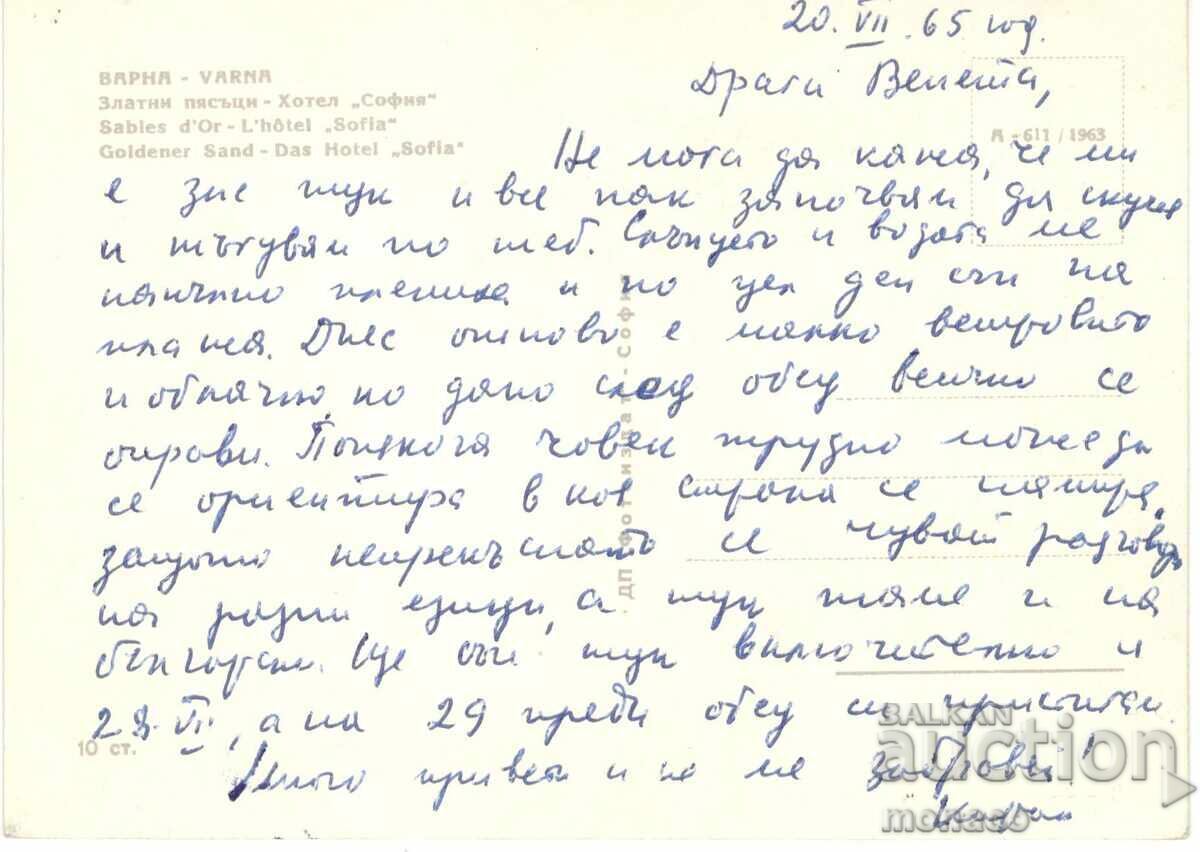 20. VII. 65 год.
Драга Венета,
ВАРНА - VARNA
Златни пясъци - Хотел „София"
Sables d'Or - L'hôtel „Sofia"
Goldener Sand - Das Hotel „Sofia"
А - 611 / 1963
Не мога да кажа, че ми
е зле тук и все пак започвам да скучая
и тъгувам по теб. Слънцето и водата ме
напълно плениха и по цял ден съм на
плажа. Днес отново е малко ветровито
и облачно, но дано след обед времето се
оправи. Понякога човек трудно може да
се ориентира в коя страна се намира,
защото непрекъснато се чуват разговори
на разни езици, а тук таме и на
български. Ще съм тук включително и
28. VII, а на 29 преди обед си пристигам.
Много привети и не ме забравяй!
ДП Фотоиздат - София
10 ст.
BALKAN
auction
monaco